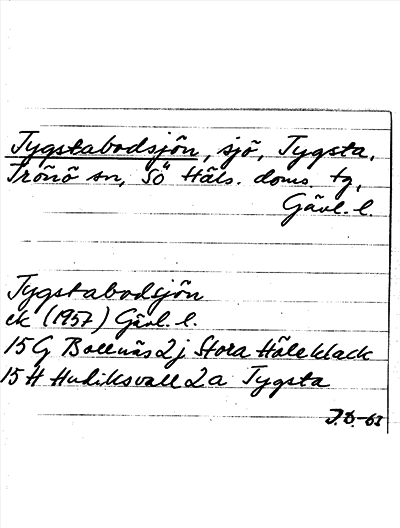 Tygstabodsjön, sjö, Tygsta,
Trönö sn, Sö Häls. doms. tg,
Gävl. l.
Tygstabodsjön
ek (1957) Gävl. l.
15 G Bollnäs 2 j Stora Höleklack
15 H Hudiksvall 2 a Tygsta
J.D.-63